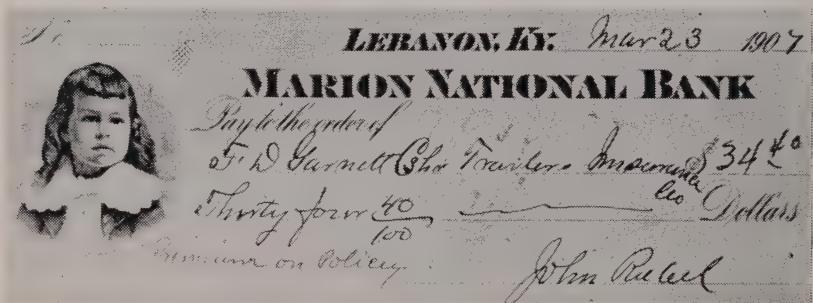 LEBANON, KY. Mar 23 1907
MARION NATIONAL BANK
Pay to the order of
F D Garnett Cshr Travelers Insurance Co $ 34 40
Thirty four 40/100 Dollars
Premium on Policy
John